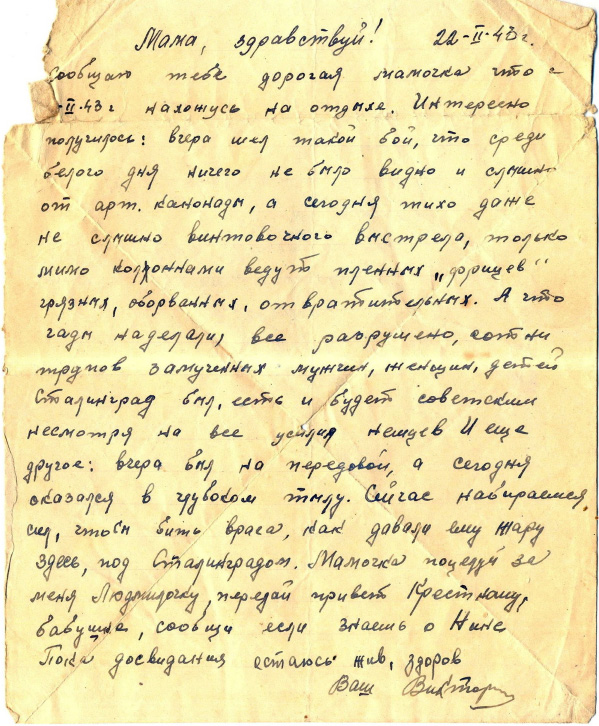 Мама, здравствуй! 22-II-43г.
Сообщаю тебе дорогая мамочка что с
-II-43г нахожусь на отдыхе. Интересно
получилось: вчера шел такой бой, что среди
белого дня ничего не было видно и слышно
от арт. канонады, а сегодня тихо даже
не слышно винтовочного выстрела, только
мимо колоннами ведут пленных „фрицев"
грязных, оборванных, отвратительных. А что
гады наделали, все разрушено, сотни
трупов замученных мужчин, женщин, детей
Сталинград был, есть и будет советским
несмотря на все усилия немцев И еще
другое: вчера был на передовой, а сегодня
оказался в глубоком тылу. Сейчас набираемся
сил, чтобы бить врага, как давали ему жару
здесь, под Сталинградом. Мамочка поцелуй за
меня Людмилочку, передай привет Крестному,
бабушке, сообщи если знаешь о Нине
Пока досвидания остаюсь жив, здоров
Ваш Виктор